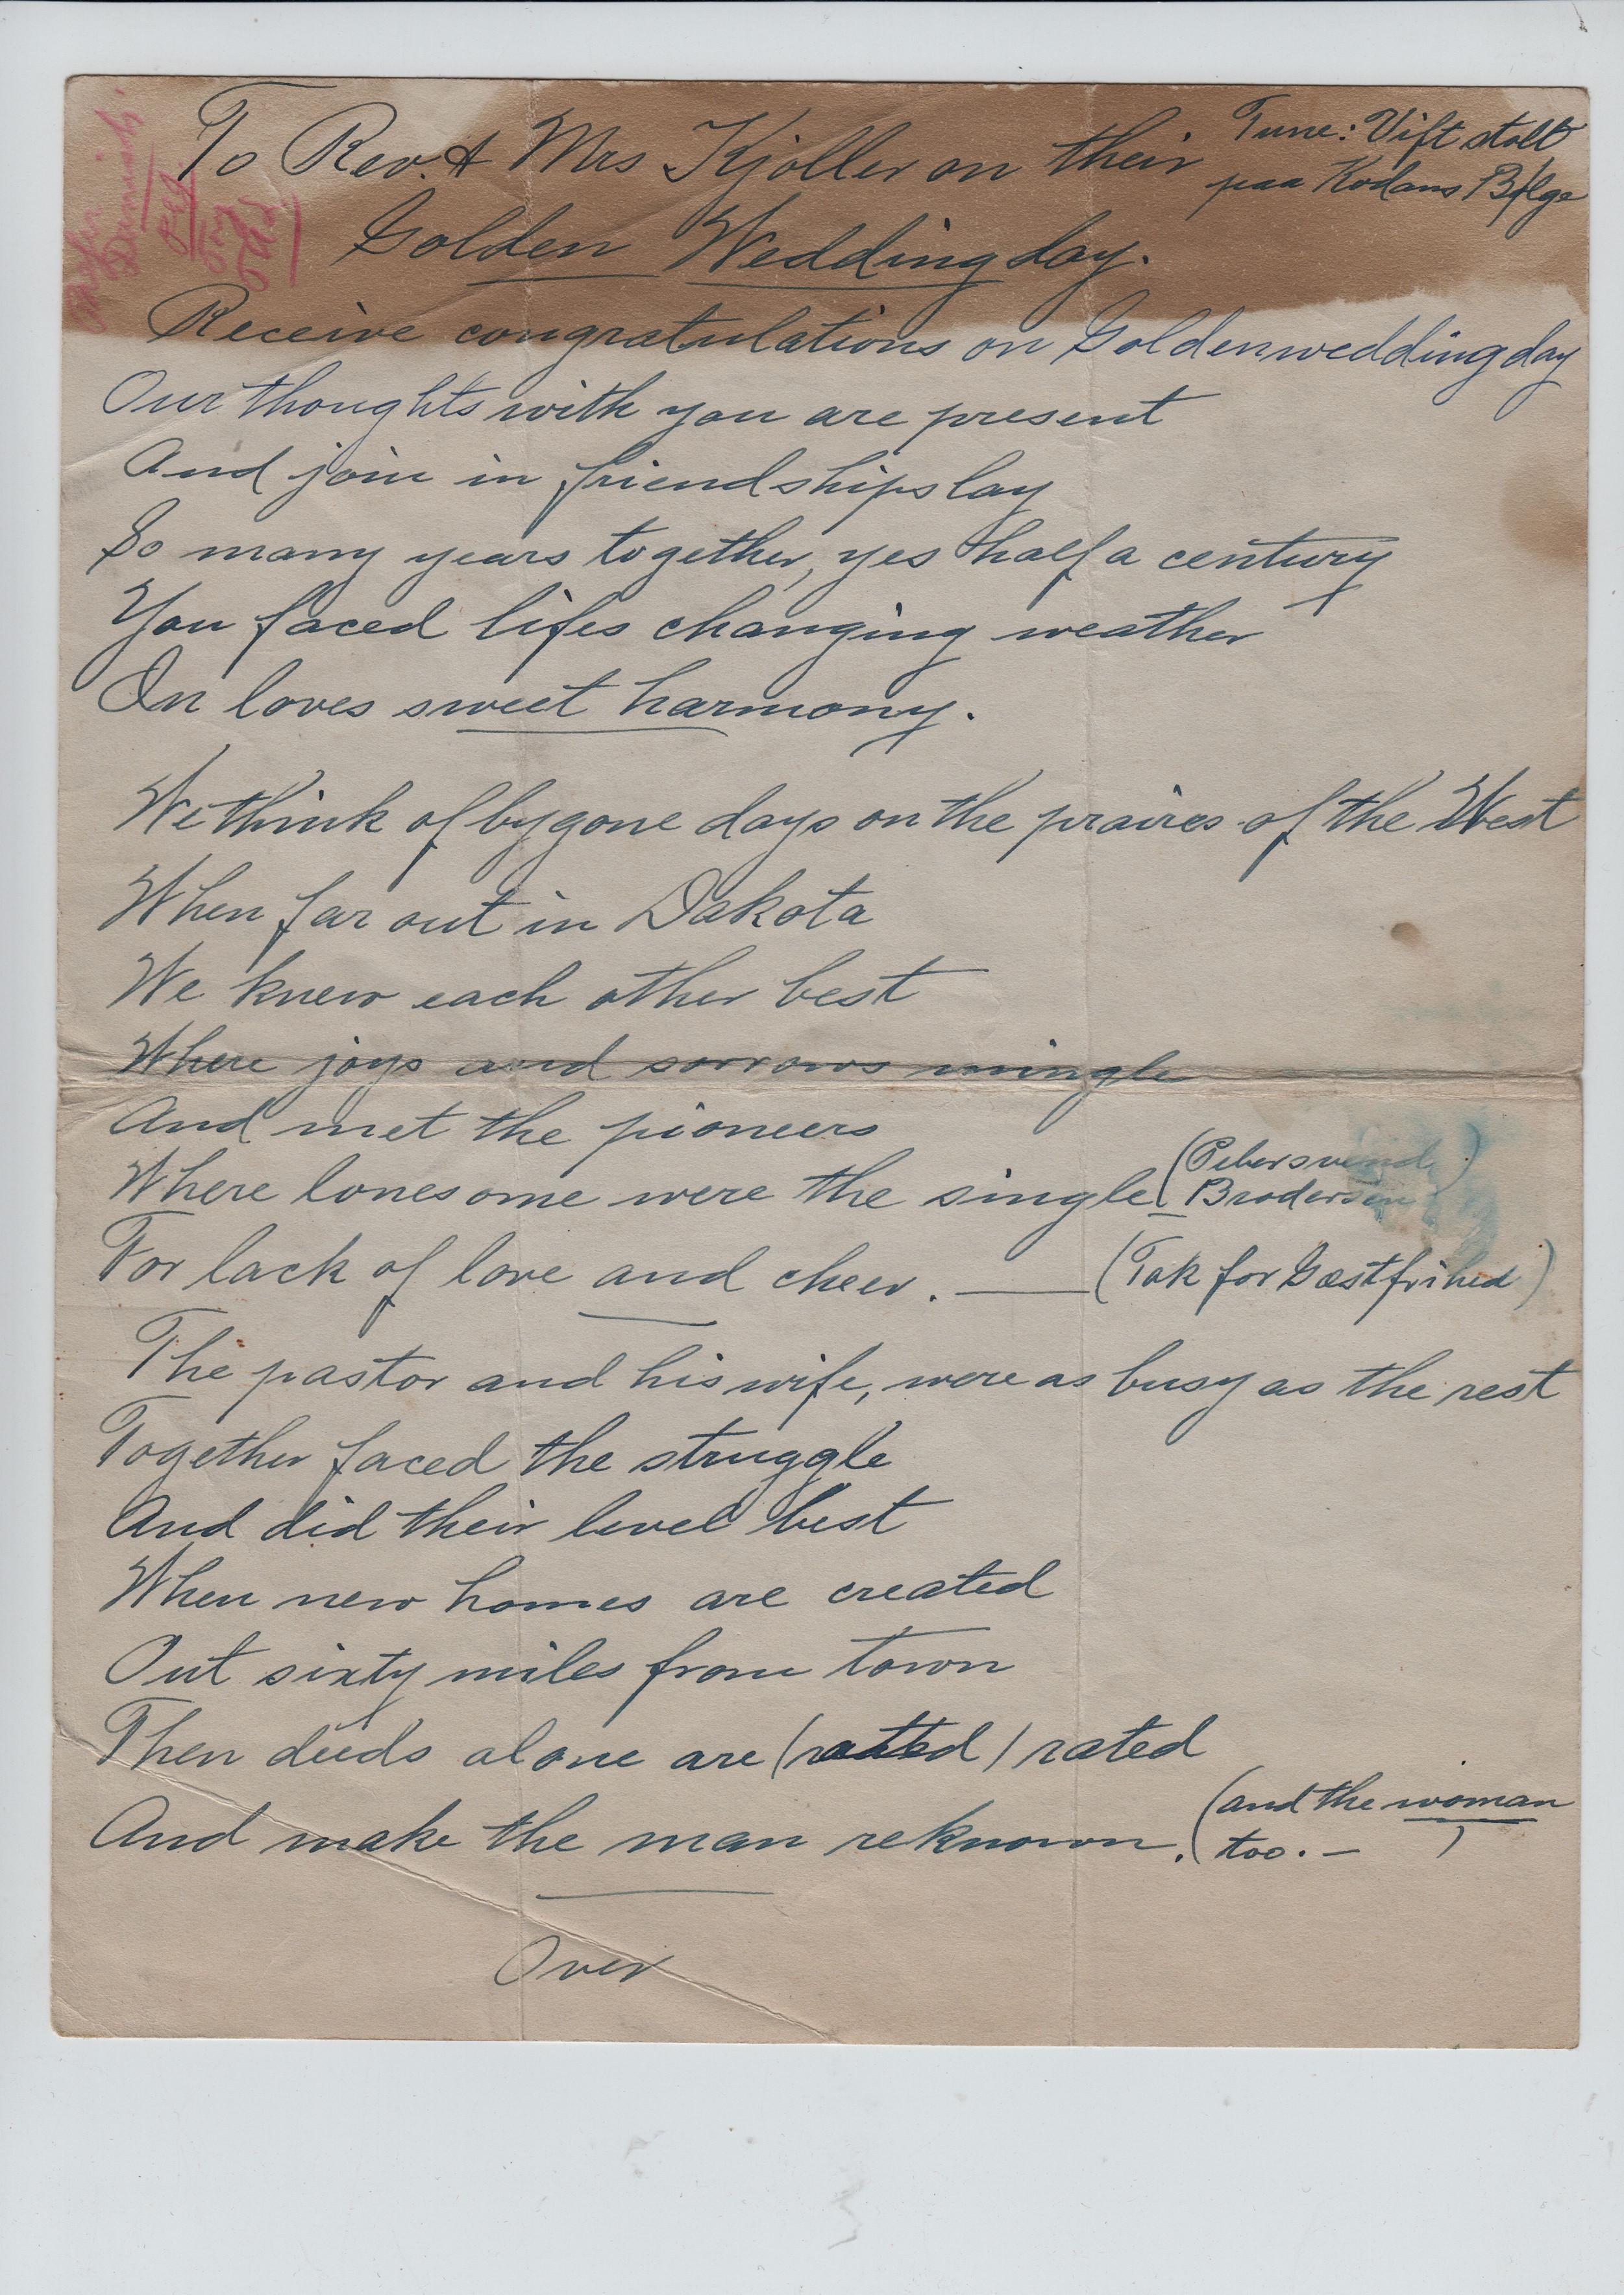 To Rev. & Mrs Kjoller on their
Golden Weddingday.
Tune: Vift stolt
paa Kodans Bølge
Receive congratulations on Goldenweddingday
Our thoughts with you are present
And join in friendships lay
So many years together, yes half a century
You faced lifes changing weather
In loves sweet harmony.
We think of bygone days on the praires of the West
When far out in Dakota
We knew each other best
Where joys and sorrows mingle
And met the pioneers
Where lonesome were the single (Pebersvend)
Brodersen
For lack of love and cheer. — (Tak for Gæstfrihed)
The pastor and his wife, were as busy as the rest
Together faced the struggle
And did their level best
When new homes are created
Out sixty miles from town
Then deeds alone are (rated) rated
And make the man reknown. (and the woman
too. — )
Over